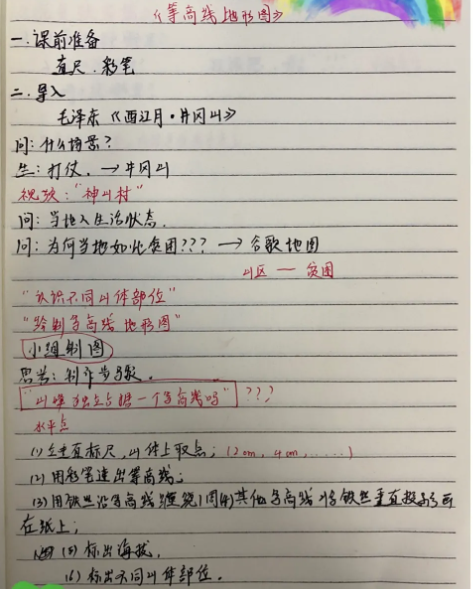 《等高线地形图》
一.课前准备
直尺.彩笔
二.导入
毛泽东《西江月·井冈山》
问:什么场景?
生:打仗.→井冈山
视频:"神山村"
问:当地人生活状态.
问:为何当地如此贫困???→谷歌地图
山区—贫困
"认识不同山体部位"
"绘制等高线地形图"
小组制图
思考:制作步骤.
"山峰独立占据一个等高线吗"???
水平点
(1)立直标尺,山体上取点;(2cm,4cm,......)
(2)用彩笔连出等高线;
(3)用铁丝沿等高线缠绕1周(4)其他等高线 将铁丝垂直投影
在纸上;
(5)标出海拔.
(6)标出不同山体部位.